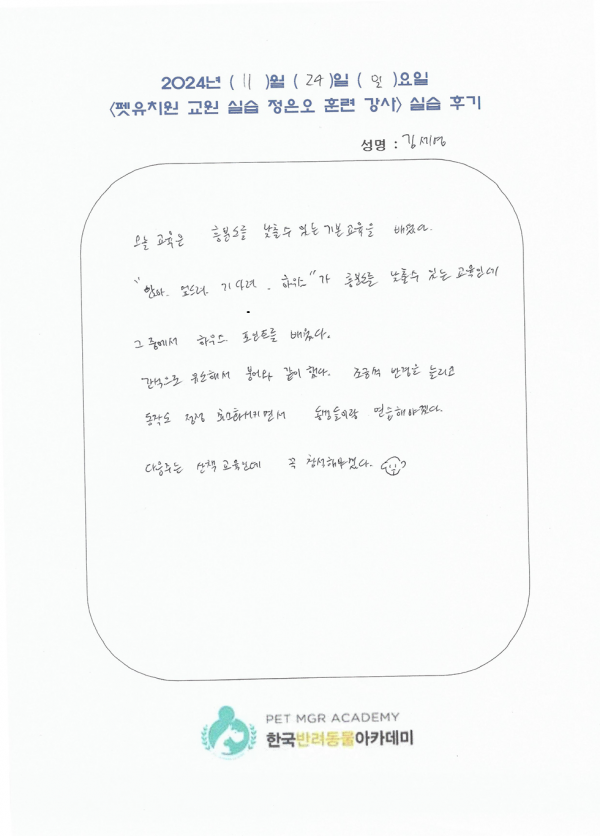 2024년 ( 11 )월 ( 24 )일 ( 일 )요일
<펫유치원 교원 실습 정은오 훈련 강사> 실습 후기
성명 : 김세영
오늘 교육은 흥분도를 낮출수 있는 기본교육을 배웠다.
"앉아. 엎드려. 기다려. 하우스"가 흥분도를 낮출수 있는 교육인데
그 중에서 하우스 포인트를 배웠다.
간식으로 유도해서 붕어와 같이 했다. 조금씩 반경을 늘리고
동작도 점점 최소화시키면서 동강둥이랑 연습해야겠다.
다음주는 산책교육인데 꼭 참석해야겠다.
PET MGR ACADEMY
한국반려동물아카데미